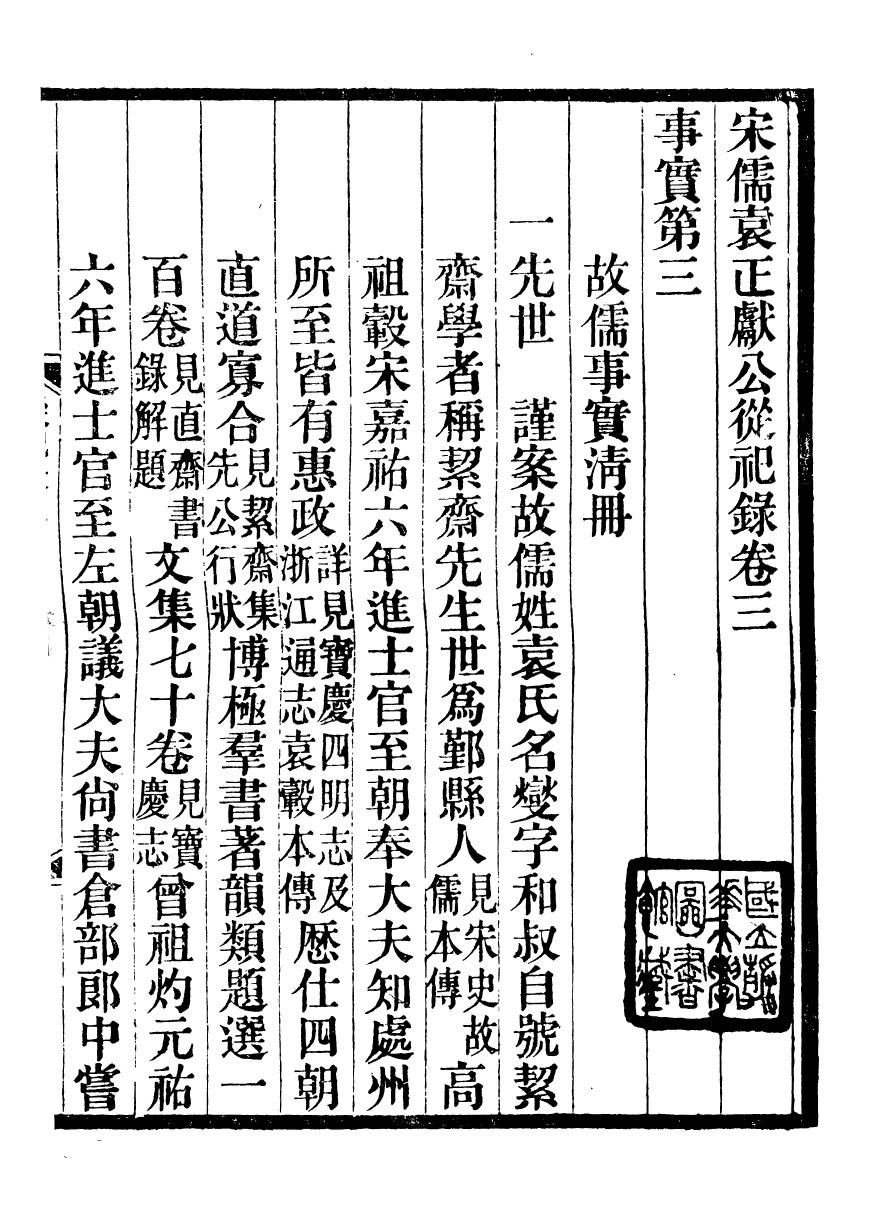 宋儒袁正獻公從祀錄卷三
事實第三
故儒事實清冊
一先世　謹案故儒姓袁氏名燮字和叔自號絜
齋學者稱絜齋先生世爲鄞縣人見宋史故儒本傳高
祖轂宋嘉祐六年進士官至朝奉大夫知處州
所至皆有惠政詳見寶慶四明志及浙江通志袁轂本傳歷仕四朝
直道寡合見絜齋集先公行狀博極羣書著韻類題選一
百卷見直齋書錄解題文集七十卷見寶慶志曾祖灼元祐
六年進士官至左朝議大夫尙書倉部郎中嘗